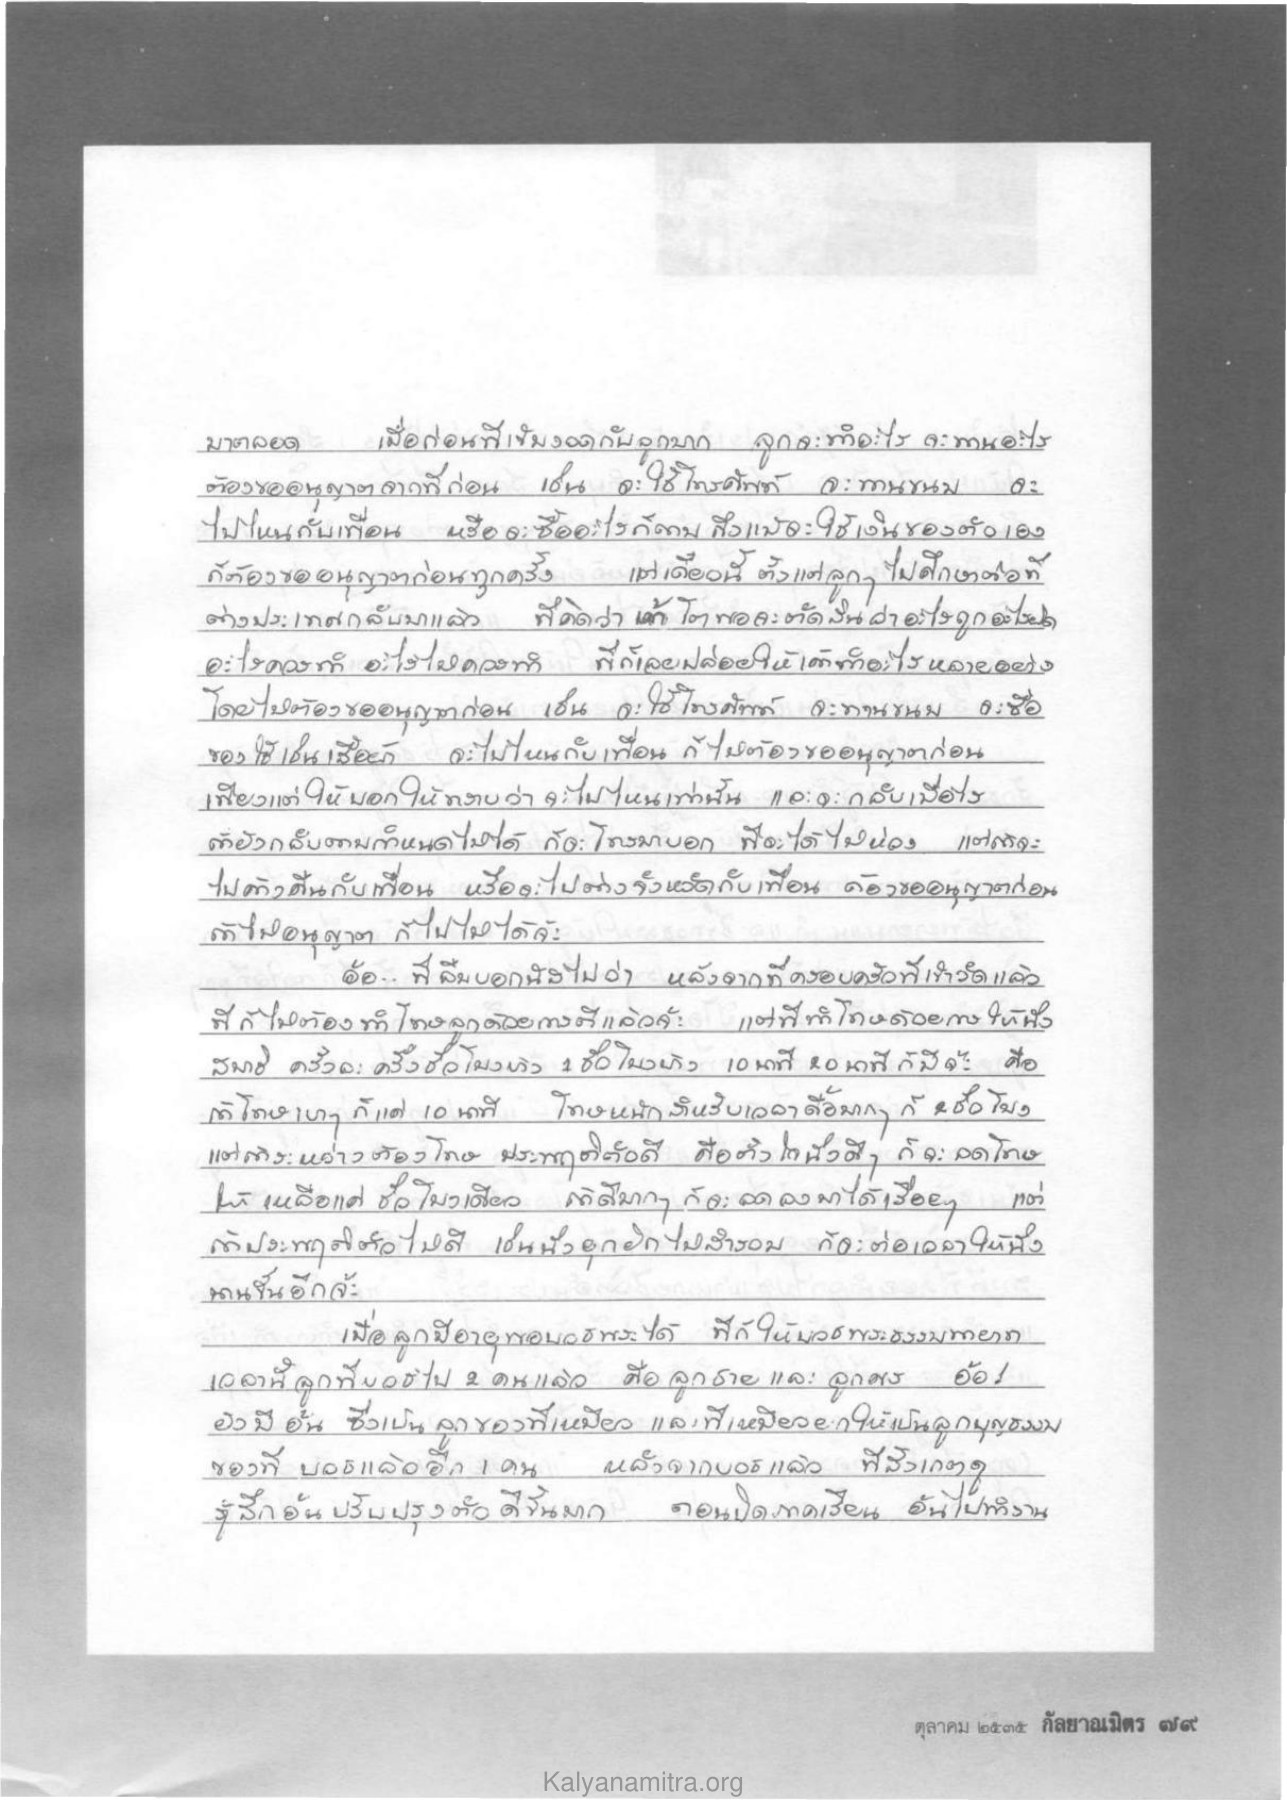 มาตลอด เมื่อก่อนพี่เข้มงวดกับลูกมาก ลูกจะทำอะไร จะทานอะไร
ต้องขออนุญาตจากพี่ก่อน เช่น จะใช้โทรศัพท์ จะทานขนม จะ
ไปไหนกับเพื่อน หรือจะซื้ออะไรก็ตาม ถึงแม้จะใช้เงินของตัวเอง
ก็ต้องขออนุญาตก่อนทุกครั้ง แต่เดี๋ยวนี้ ตั้งแต่ลูกๆ ไปศึกษาต่อที่
ต่างประเทศกลับมาแล้ว พี่คิดว่า เค้าโตพอจะตัดสินว่าอะไรถูกอะไรผิด
อะไรควรทำ อะไรไม่ควรทำ พี่ก็เลยปล่อยให้เค้าทำอะไรหลายอย่าง
โดยไม่ต้องขออนุญาตก่อน เช่น จะใช้โทรศัพท์ จะทานขนม จะซื้อ
ของใช้เช่นเสื้อผ้า จะไปไหนกับเพื่อน ก็ไม่ต้องขออนุญาตก่อน
เพียงแต่ให้บอกให้ทราบว่าจะไปไหนเท่านั้น และจะกลับเมื่อไร
ถ้ายังกลับตามกำหนดไม่ได้ ก็จะโทรมาบอก พี่จะได้ไม่ห่วง แต่ถ้าจะ
ไปค้างคืนกับเพื่อน หรือจะไปต่างจังหวัดกับเพื่อน ต้องขออนุญาตก่อน
ถ้าไม่อนุญาต ก็ไปไม่ได้จ้ะ
อ้อ.. พี่ลืมบอกน้องไปว่า หลังจากที่ครอบครัวพี่เข้าวัดแล้ว
พี่ก็ไม่ต้องทำโทษลูกด้วยการตีแล้วจ้ะ แต่พี่ทำโทษด้วยการให้นั่ง
สมาธิ ครั้งละ ครึ่งชั่วโมงบ้าง ๑ ชั่วโมงบ้าง ๑๐ นาที ๒๐ นาทีก็มีจ้ะ คือ
ถ้าโทษเบาๆ ก็แค่ ๑๐ นาที โทษหนักสำหรับเวลาดื้อมากๆ ก็ ๒ ชั่วโมง
แต่ถ้าระหว่างต้องโทษ ประพฤติตัวดี คือตั้งใจนั่งดีๆ ก็จะลดโทษ
ให้ เหลือแค่ ชั่วโมงเดียว ถ้าดีมากๆ ก็จะลดลงมาได้เรื่อยๆ แต่
ถ้าประพฤติตัวไม่ดี เช่นนั่งยุกยิกไม่สำรวม ก็จะต่อเวลาให้นั่ง
นานขึ้นอีกจ้ะ
เมื่อลูกมีอายุพอบวชพระได้ พี่ก็ให้บวชพระธรรมทายาท
เวลานี้ลูกพี่บวชไป ๒ คนแล้ว คือ ลูกชาย และ ลูกศร อ้อ!
ยังมี อั๋น ซึ่งเป็นลูกของพี่เหมียว และพี่เหมียวยกให้เป็นลูกบุญธรรม
ของพี่ บวชแล้วอีก ๑ คน หลังจากบวชแล้ว พี่สังเกตดู
รู้สึกอั๋นปรับปรุงตัวดีขึ้นมาก ตอนปิดภาคเรียน อั๋นไปทำงาน
ตุลาคม ๒๕๓๕ กัลยาณมิตร ๗๙
Kalyanamitra.org